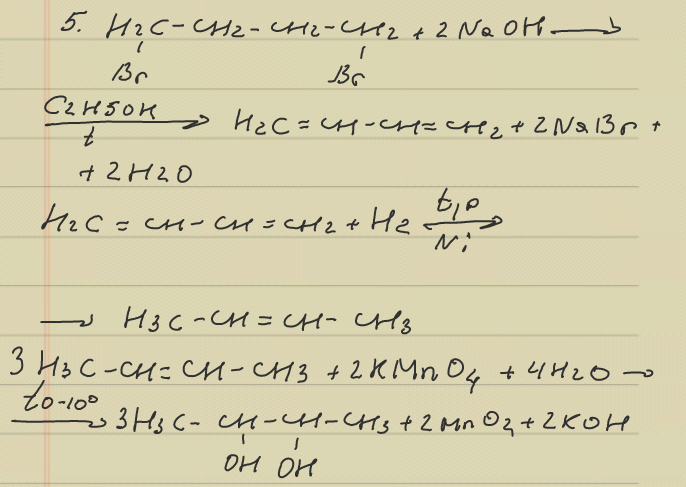 5. H₂C-CH₂-CH₂-CH₂ + 2NaOH ⟶
Br Br
C2H5OH
⟶ H₂C=CH-CH=CH₂ + 2NaBr +
t
+ 2H2O
H₂C=CH-CH=CH₂ + H₂ ⟶
t,p
Ni
⟶ H₃C-CH=CH-CH₃
3H₃C-CH=CH-CH3 + 2KMnO₄ + 4H₂O ⟶
t0-10⁰
⟶ 3H₃C-CH-CH-CH₃ + 2MnO₂ + 2KOH
OH OH